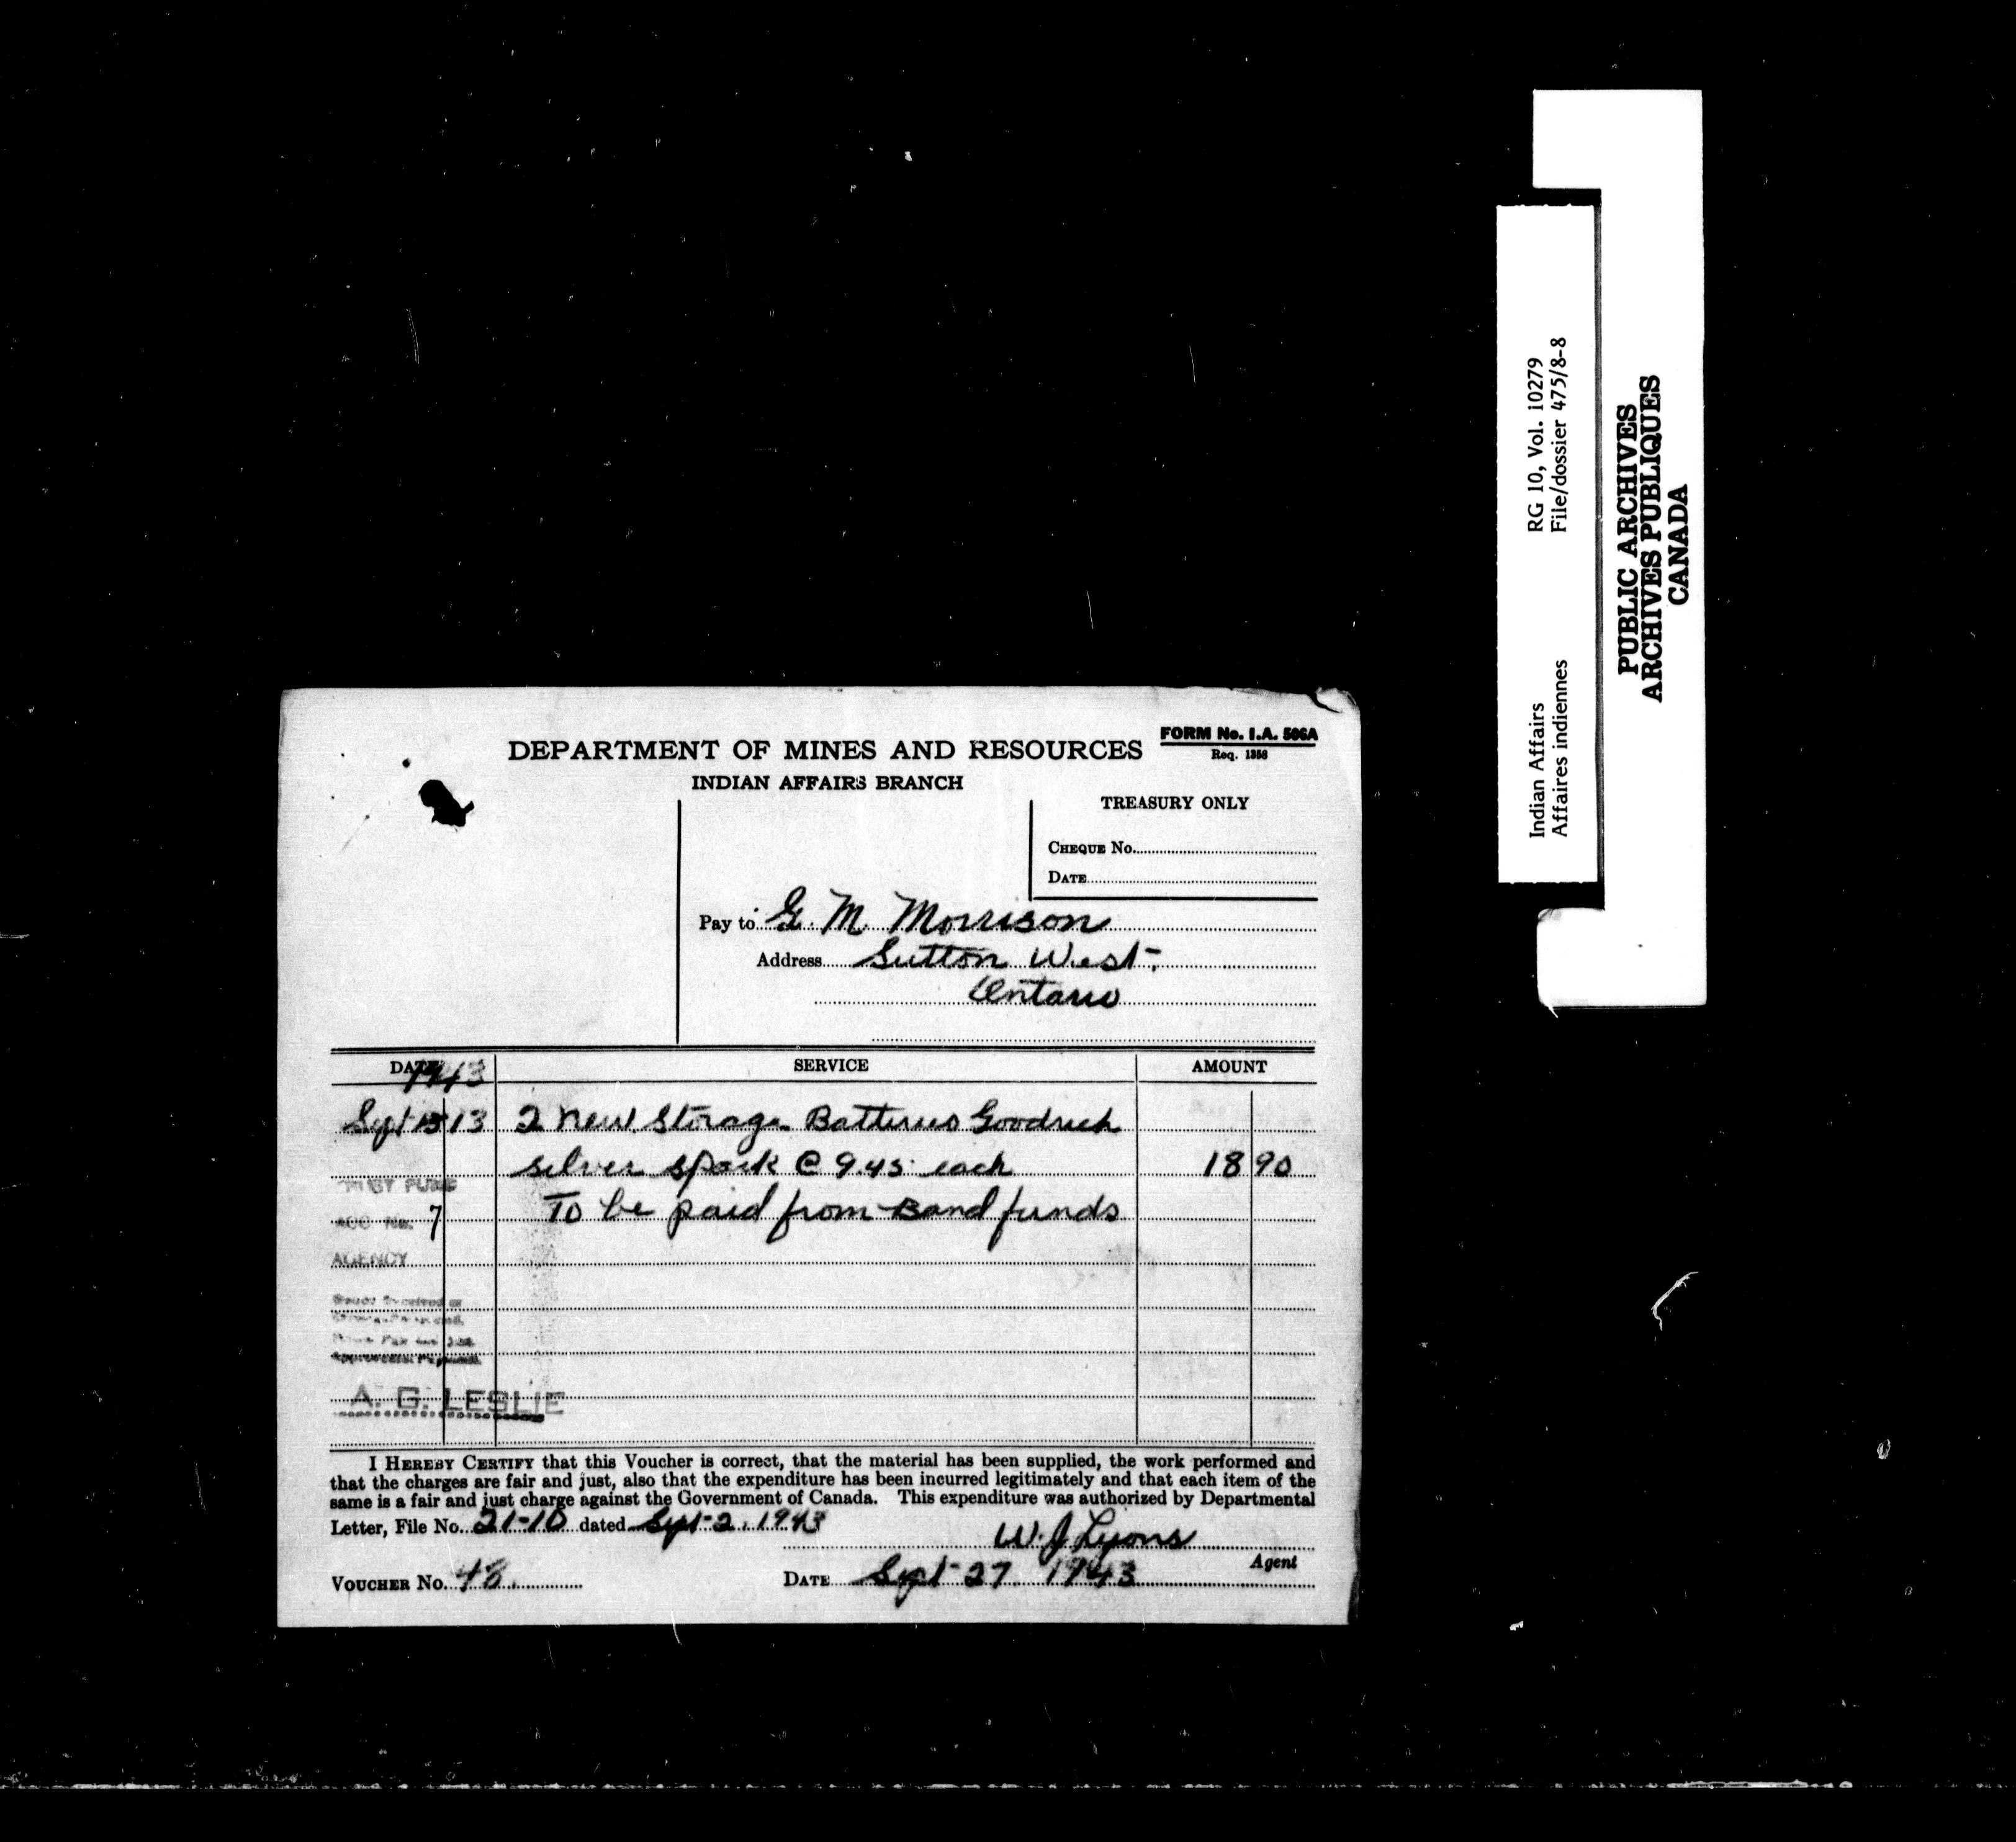 DEPARTMENT OF MINES AND RESOURCES
INDIAN AFFAIRS BRANCH
FORM No. I.A. 506A
Req. 1358
TREASURY ONLY
CHEQUE No.
DATE
Pay to G. M. Morrison
Address Sutton West.
Ontario
DATE SERVICE AMOUNT
1943
Sept 13 2 new Storage Batteries Goodrich
silver spark @ 9.45 each 18 90
To be paid from Band funds
TRUST FUND
ACC No. 7
AGENCY
A. G. LESLIE
I HEREBY CERTIFY that this Voucher is correct, that the material has been supplied, the work performed and
that the charges are fair and just, also that the expenditure has been incurred legitimately and that each item of the
same is a fair and just charge against the Government of Canada. This expenditure was authorized by Departmental
Letter, File No. 21-10 dated Sept 2, 1943
W. J. Lyons
Agent
VOUCHER No. 48. DATE Sept 27 1943
Indian Affairs RG 10, Vol. 10279
Affaires indiennes File/dossier 475/8-8
PUBLIC ARCHIVES
ARCHIVES PUBLIQUES
CANADA